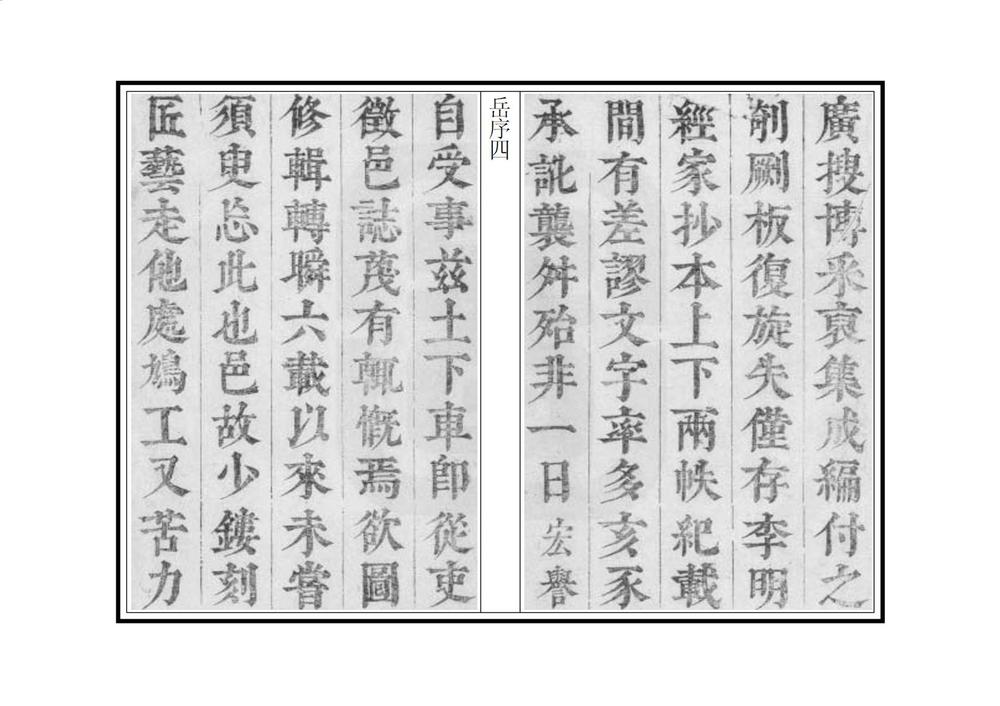 廣搜博采裒集成編付之
剞劂板復旋失僅存李明
經家抄本上下兩帙紀載
間有差謬文字率多亥豕
承訛襲舛殆非一日宏譽
岳序四
自受事兹土下車即從吏
徵邑誌蔑有輒慨焉欲圖
修輯轉瞬六載以來未嘗
須臾忘此也邑故少鏤刻
匠藝走他處鳩工又苦力